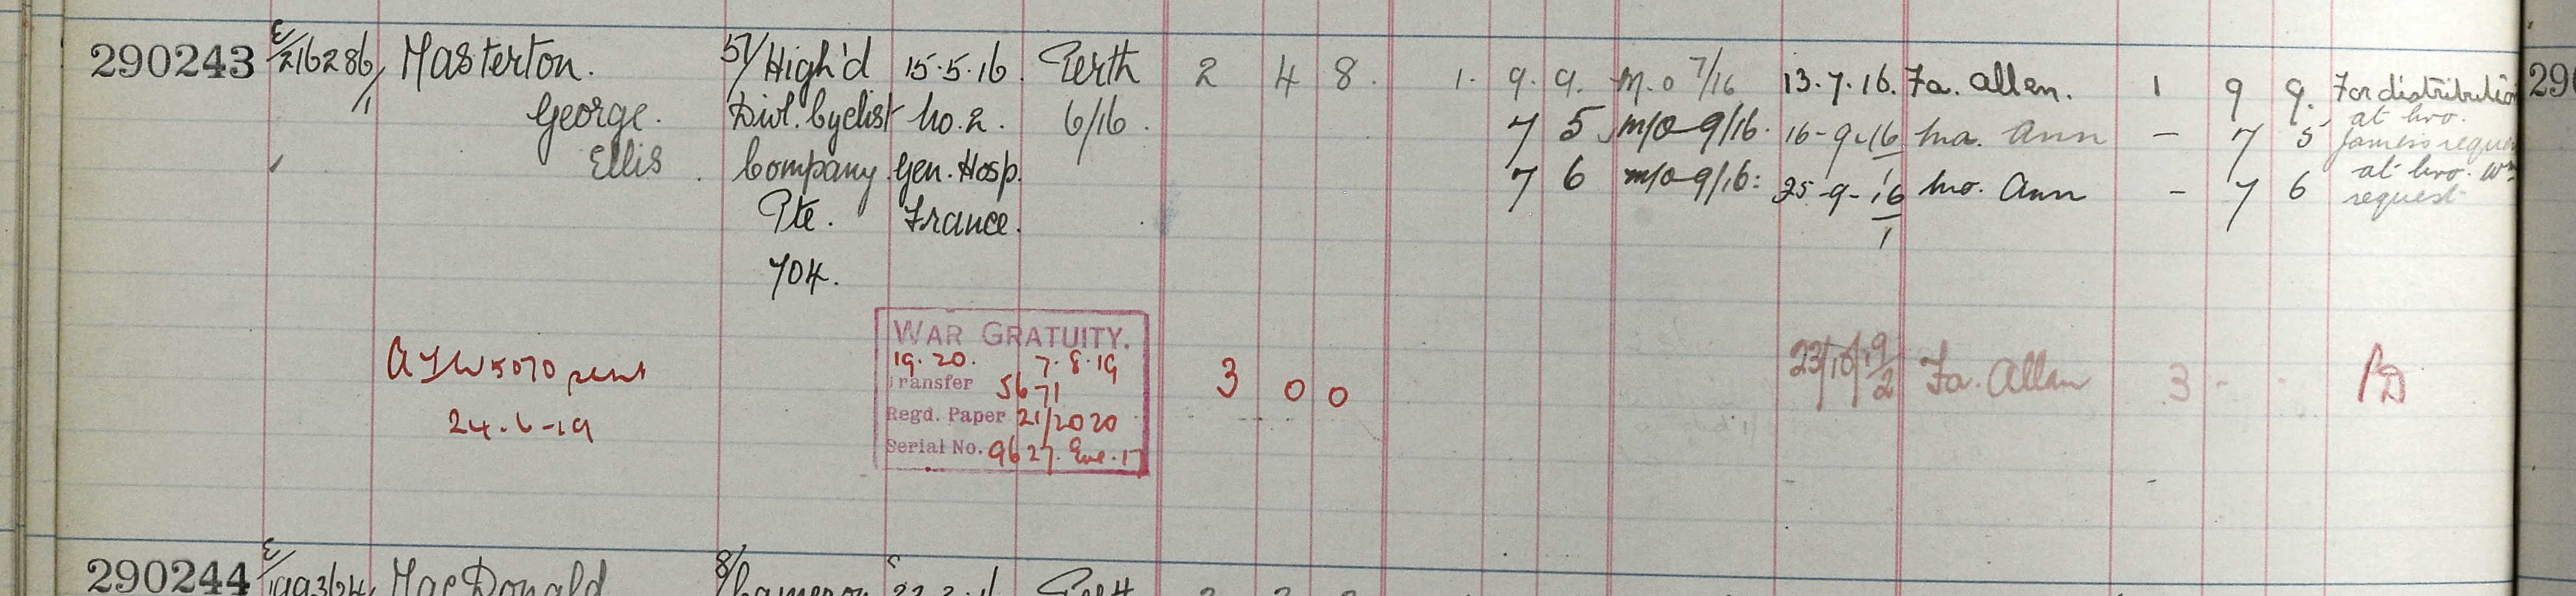 290243 E/216286/1 Masterton. 51/High'd 15.5.16. Perth 2 4 8. 1. 9. 9. M.O 7/16 13.7.16. Fa. Allen. 1 9 9. For distribution
George. Divl. Cyclist No. 2. 6/16. 7 5 M/O 9/16. 16-9-16 Mo. Ann - 7 5 at bro.
Ellis. Company Gen. Hosp. 7 6 M/O 9/16: 25-9-16 Mo. Ann - 7 6 James's reques
Pte. France. 1 at bro. Wm
704. request
WAR GRATUITY.
19.20. 7.8.19 3 0 0 23/10/19 Fa. Allan 3 - - PD
Transfer 5671
Regd. Paper 21/2020
Serial No. 9627
24.6-19
290244 MacDonald 8/Cameron Perth
290